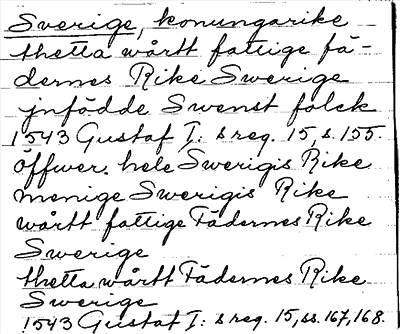 Sverige, konungarike
thetta wårtt fattige fä-
dernes Rike Swerige
jnfödde Swenst folck
1543 Gustaf I: s reg. 15, s. 155.
öffwer. hele Swerigis Rike
menige Swerigis Rike
wårtt fattige Fädernes Rike
Swerige
thetta wårtt Fädernes Rike
Swerige
1543 Gustaf I: s reg. 15, ss. 167, 168.